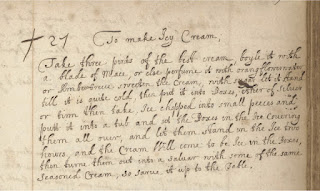 + 27 To make Icy Cream.
Take three pints of the best cream, boyle it with
a blade of Mace, or else perfume it with orang flower water
or Ambergreece, sweeten the Cream, with sugar let it stand
till it is quite cold, then put it into Boxes, either of Silver
or tinn then take, Ice chopped into small peeces and
putt it into a tub and set the Boxes in the Ice couering
them all ouer, and let them stand in the Ice two
howres, and the Cream Will come to be Ice in the Boxes,
then turne them out into a salvar with some of the same
Seasoned Cream, so sarue it up to the Table.